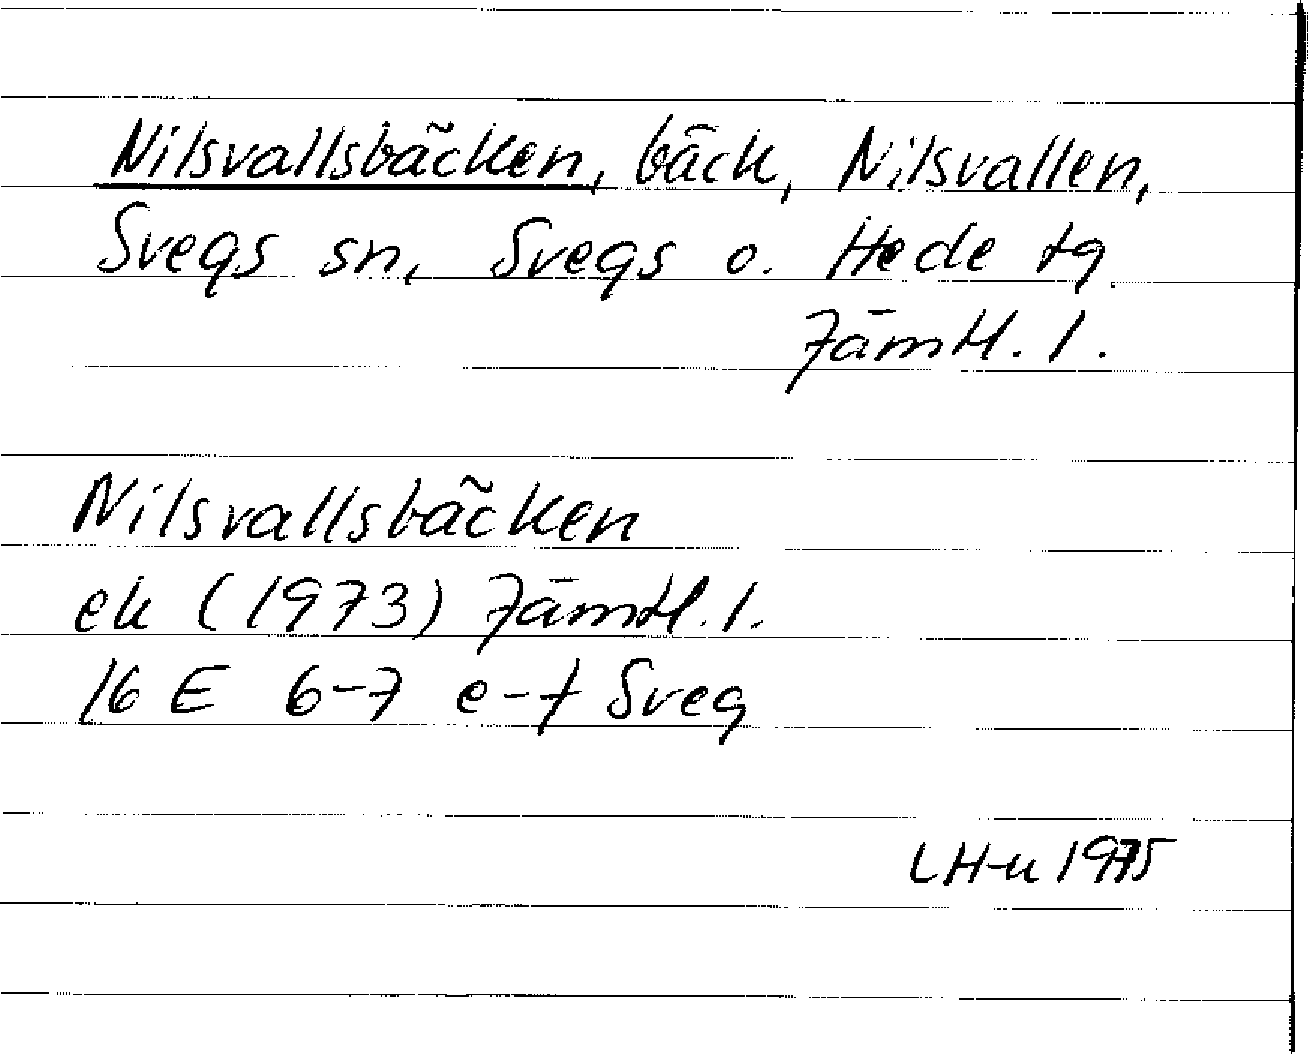 Nilsvallsbäcken, bäck, Nilsvallen,
Svegs sn, Svegs o. Hede tg
Jämtl. l.
Nilsvallsbäcken
ek (1973) Jämtl. l.
16 E 6-7 e-f Sveg
LH-n 1975